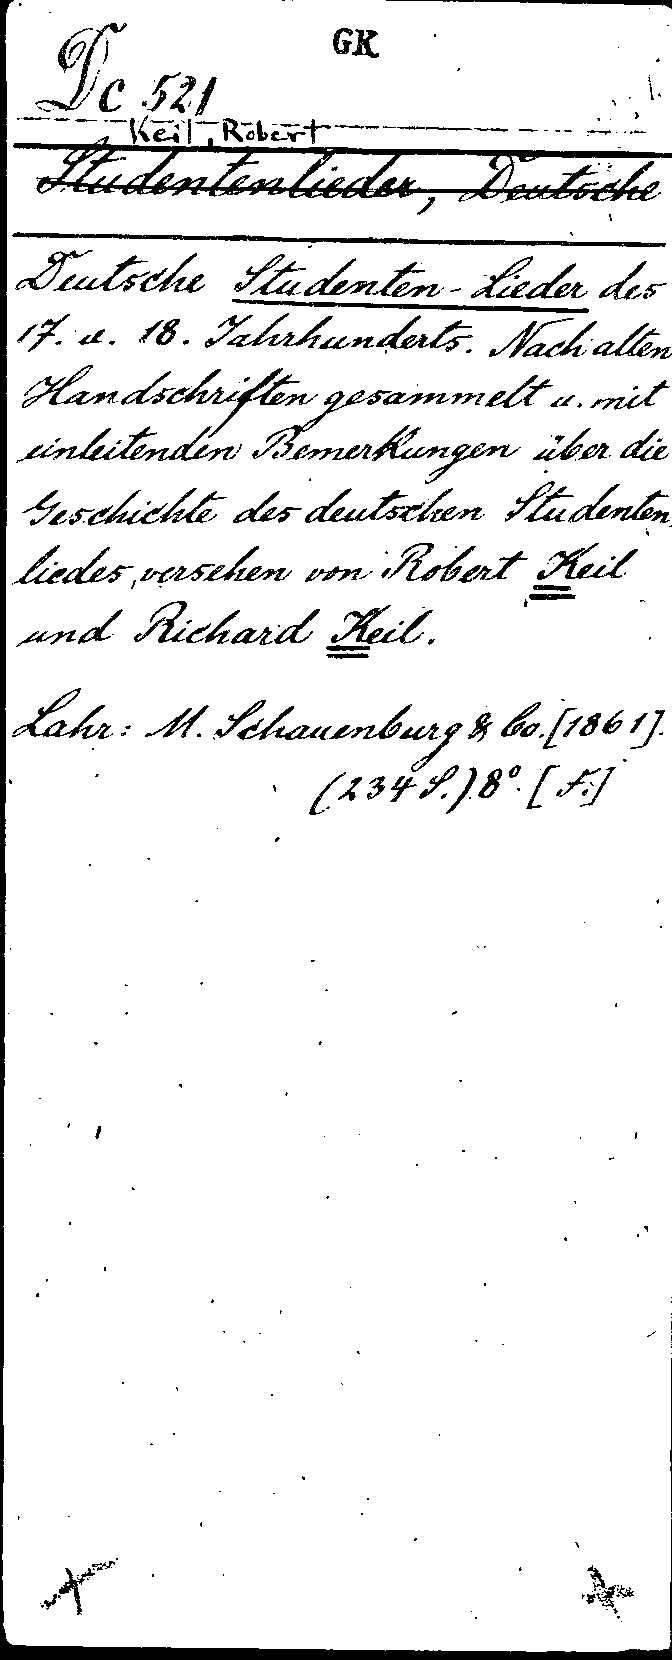 GK
Dc 521
Keil, Robert
Studentenlieder, Deutsche
Deutsche Studenten-Lieder des
17. u. 18. Jahrhunderts. Nach alten
Handschriften gesammelt u. mit
einleitenden Bemerkungen über die
Geschichte des deutschen Studenten
liedes, versehen von Robert Keil
und Richard Keil.
Lahr: M. Schauenburg & Co. [1861].
(234 S.) 8°. [F.]